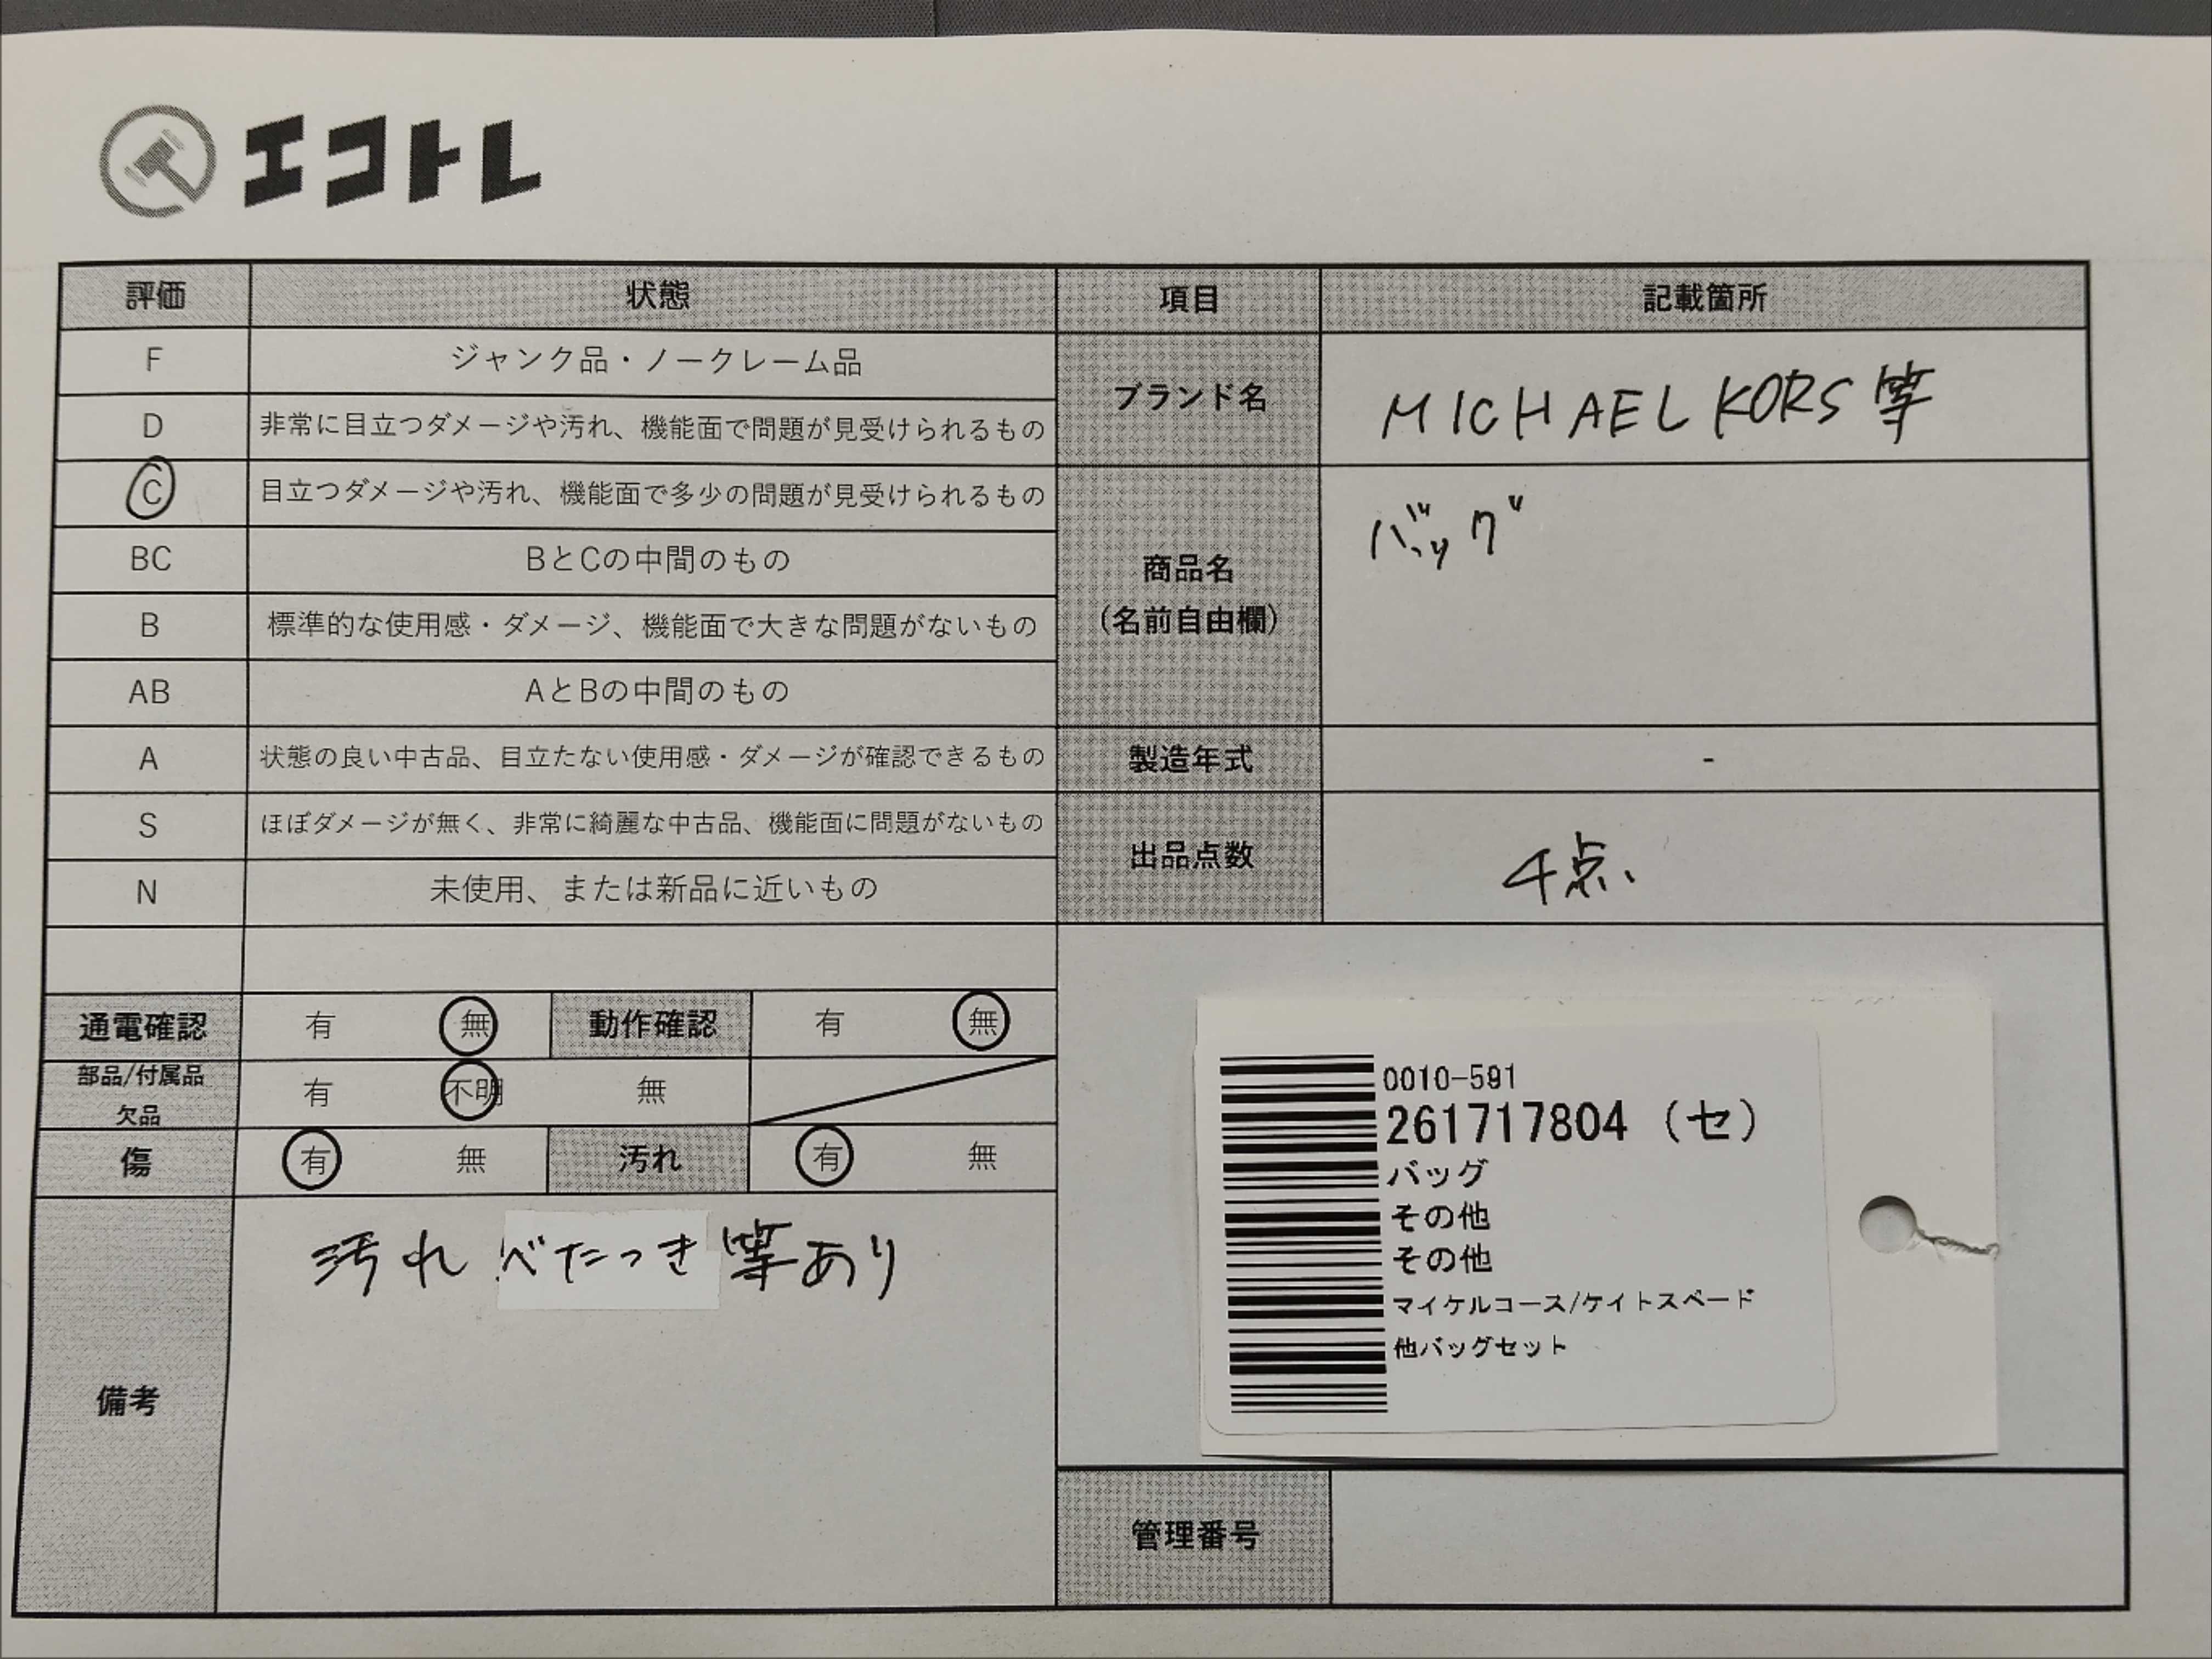 エコトレ
評価 状態 項目 記載箇所
F ジャンク品・ノークレーム品
D 非常に目立つダメージや汚れ、機能面で問題が見受けられるもの
ブランド名 MICHAEL KORS 等
C 目立つダメージや汚れ、機能面で多少の問題が見受けられるもの
BC BとCの中間のもの
B 標準的な使用感・ダメージ、機能面で大きな問題がないもの
AB AとBの中間のもの
商品名 バッグ
(名前自由欄)
A 状態の良い中古品、目立たない使用感・ダメージが確認できるもの
製造年式 -
S ほぼダメージが無く、非常に綺麗な中古品、機能面に問題がないもの
N 未使用、または新品に近いもの
出品点数 4点、
通電確認 有 無 動作確認 有 無
部品/付属品
欠品 有 不明 無
傷 有 無 汚れ 有 無
備考 汚れ べたつき 等あり
0010-591
261717804 (セ)
バッグ
その他
その他
マイケルコース/ケイトスペード
他バッグセット
管理番号